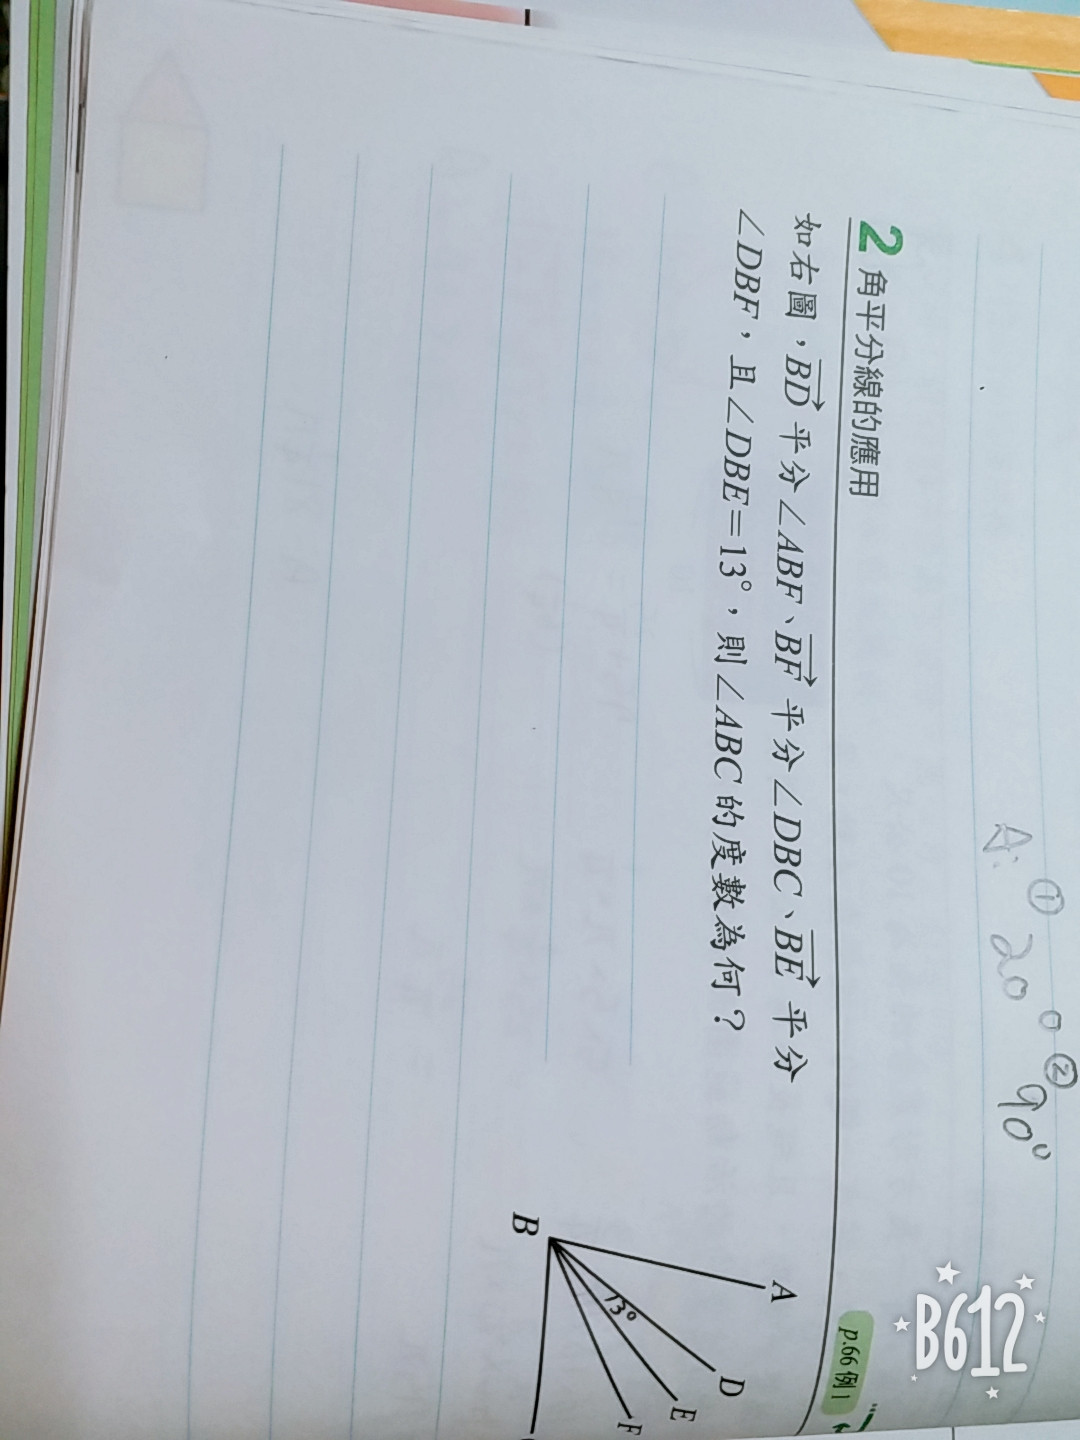 A: ① 20° ② 90°
2 角平分線的應用
p.66 例1
如右圖，BD 平分∠ABF、BF 平分∠DBC、BE 平分
∠DBF，且∠DBE=13°，則∠ABC的度數為何？
A
D
E
F
B
13°
B612